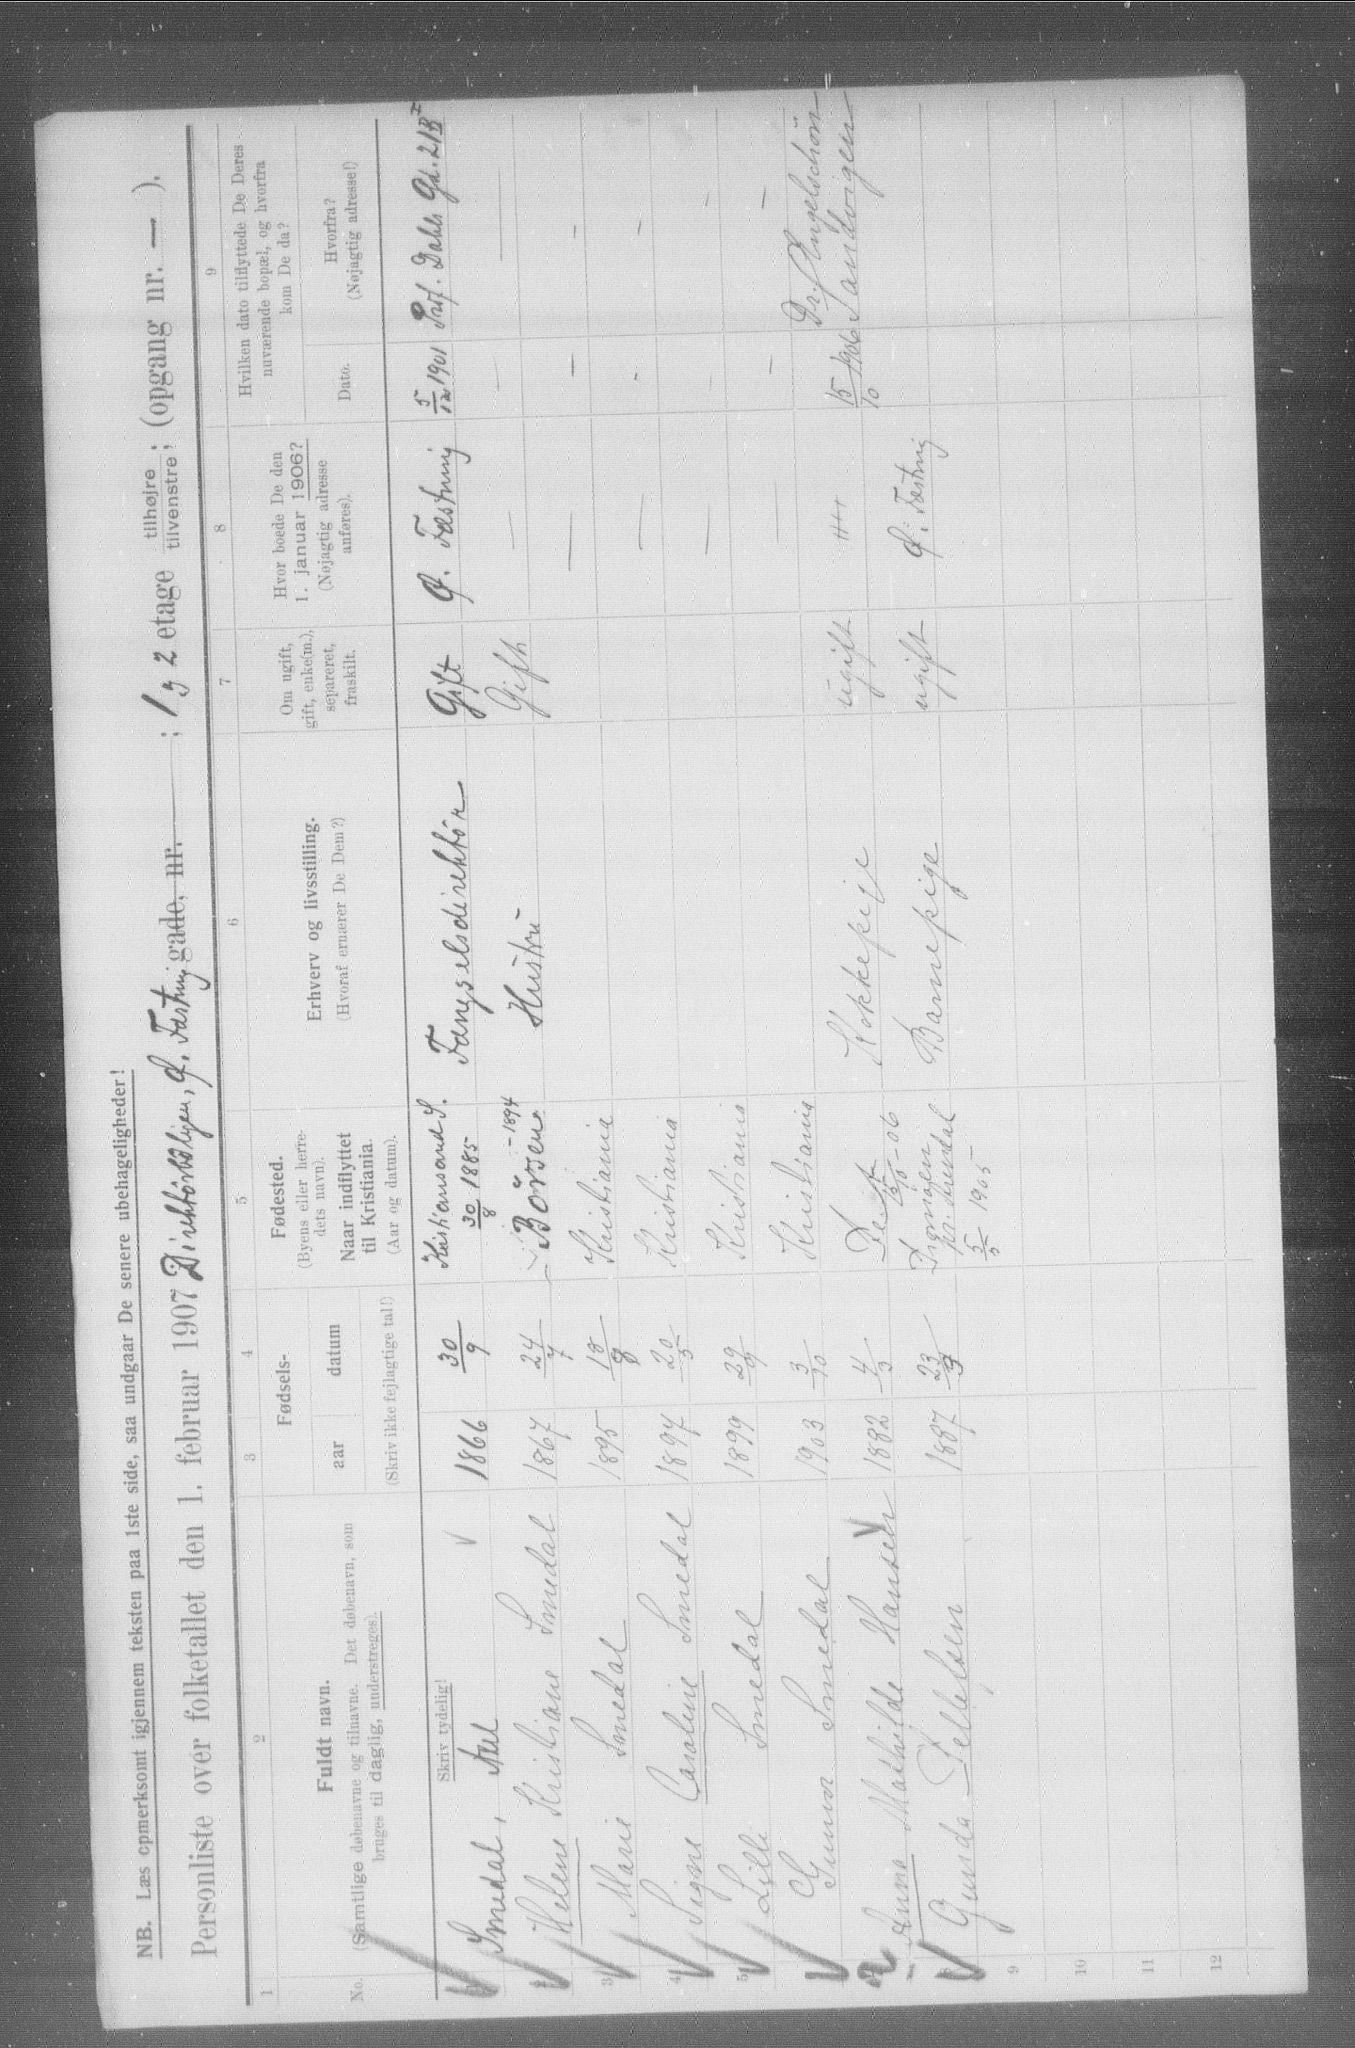 NB. Læs opmerksomt igjennem teksten paa 1ste side, saa undgaar De senere ubehageligheder!
Personliste over folketallet den 1. februar 1907 Direktörboligen, A. Fæstning gade, nr. ; 1 og 2 etage tilhøjre tilvenstre; (opgang nr. — ).
1 2 3 4 5 6 7 8 9
No.
Fuldt navn.
(Samtlige døbenavne og tilnavne. Det døbenavn, som
bruges til daglig, understreges).
Fødsels-
aar datum
(Skriv ikke fejlagtige tal!)
Fødested.
(Byens eller herre-
dets navn).
Naar indflyttet
til Kristiania.
(Aar og datum).
Erhverv og livsstilling.
(Hvoraf ernærer De Dem?)
Om ugift,
gift, enke(m.),
separeret,
fraskilt.
Hvor boede De den
1. januar 1906?
(Nøjagtig adresse
anføres).
Hvilken dato tilflyttede De Deres
nuværende bopæl, og hvorfra
kom De da?
Dato.
Hvorfra?
(Nøjagtig adresse!)
Skriv tydelig!
Smedal, Axel 1866 30/9 Kristiansand S. 30/8 1885 Fængselsdirektör Gift A. Fæstning 5/12 1901 Prof. Dahls Gd. 21B I
Helene Kristiane Smedal 1867 24/7 Börsen - 1894 Hustru Gift — — —
3 Marie Smedal 1895 18/8 Kristiania — — —
4 Signe Caroline Smedal 1897 20/5 Kristiania — — —
5 Lilli Smedal 1899 29/9 Kristiania — — —
Gunnar Smedal 1903 3/10 Kristiania — — —
Anna Mathilde Hansen 1882 4/3 15/10 - 06 Kokkepige ugift 15/10 1906 Dr. Engelschiøn Sandvigen
8 Gunda Tellefsen 1887 23/3 5/5 1905 Barnepige ugift A. Fæstning
9
10
11
12